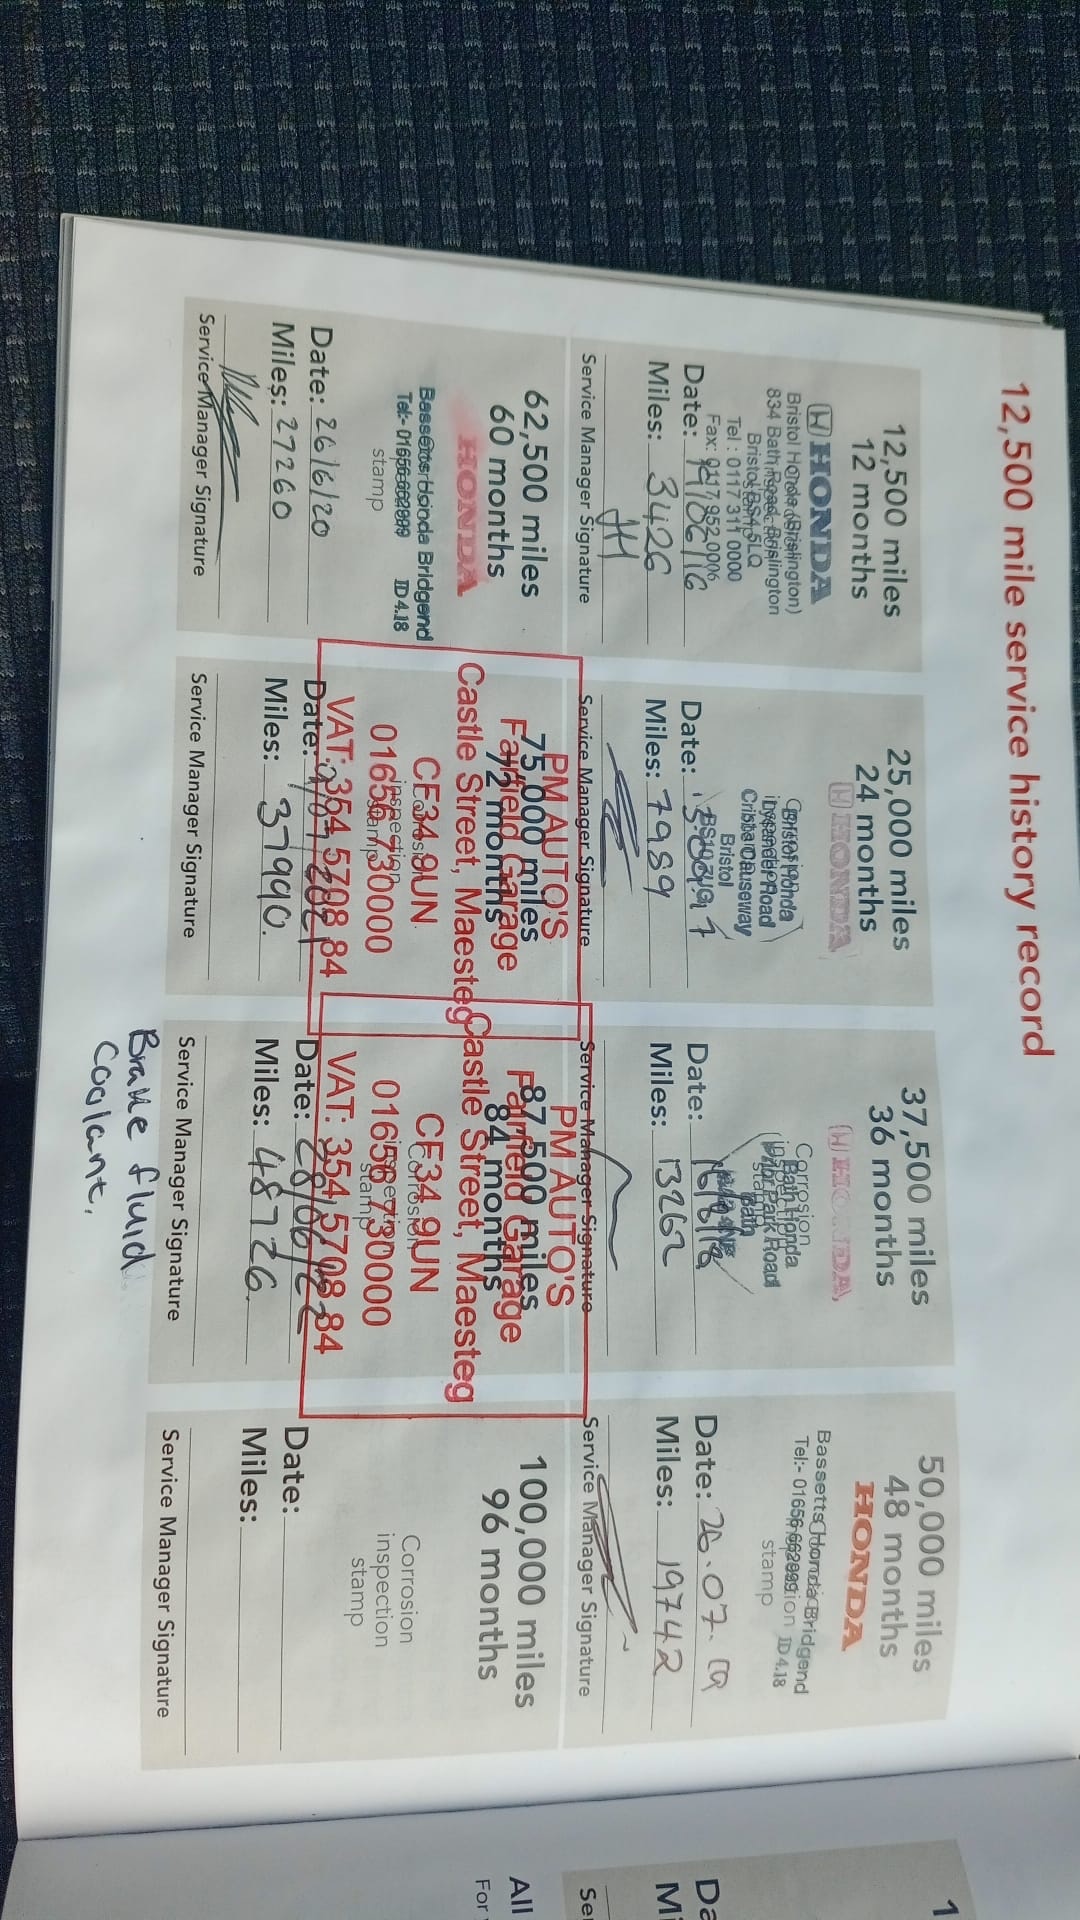 12,500 mile service history record
12,500 miles
12 months
HONDA
Bristol Honda (Brislington)
834 Bath Road, Brislington
Bristol BS4 5LQ
Tel : 0117 311 0000
Fax: 0117 952 0006
Date: 14/06/16
Miles: 3426
Service Manager Signature
25,000 miles
24 months
HONDA
Bristol Honda
Lysander Road
Cribbs Causeway
Bristol
Date:
Miles: 7989
Service Manager Signature
37,500 miles
36 months
HONDA
Corrosion
Bath Honda
Prior Park Road
Bath
Date:
Miles: 13262
Service Manager Signature
50,000 miles
48 months
HONDA
Bassetts Honda Bridgend
Tel:- 01656 662899 ID 4.18
stamp
Date: 26.07.19
Miles: 19742
Service Manager Signature
62,500 miles
60 months
HONDA
Bassetts Honda Bridgend
Tel:- 01656 662899 ID 4.18
stamp
Date: 26/6/20
Miles: 27260
Service Manager Signature
75,000 miles
72 months
PM AUTO'S
Fairfield Garage
Castle Street, Maesteg
CF34 9UN
Corrosion
inspection
stamp
01656 730000
VAT: 354 5708 84
Date: 9/07/2021
Miles: 37990.
Service Manager Signature
87,500 miles
84 months
PM AUTO'S
Fairfield Garage
Castle Street, Maesteg
CF34 9UN
Corrosion
inspection
stamp
01656 730000
VAT: 354 5708 84
Date: 28/06/22
Miles: 48726.
Service Manager Signature
Brake fluid
Coolant.
100,000 miles
96 months
Corrosion
inspection
stamp
Date:
Miles:
Service Manager Signature
1
Da
Mi
Se
All
For